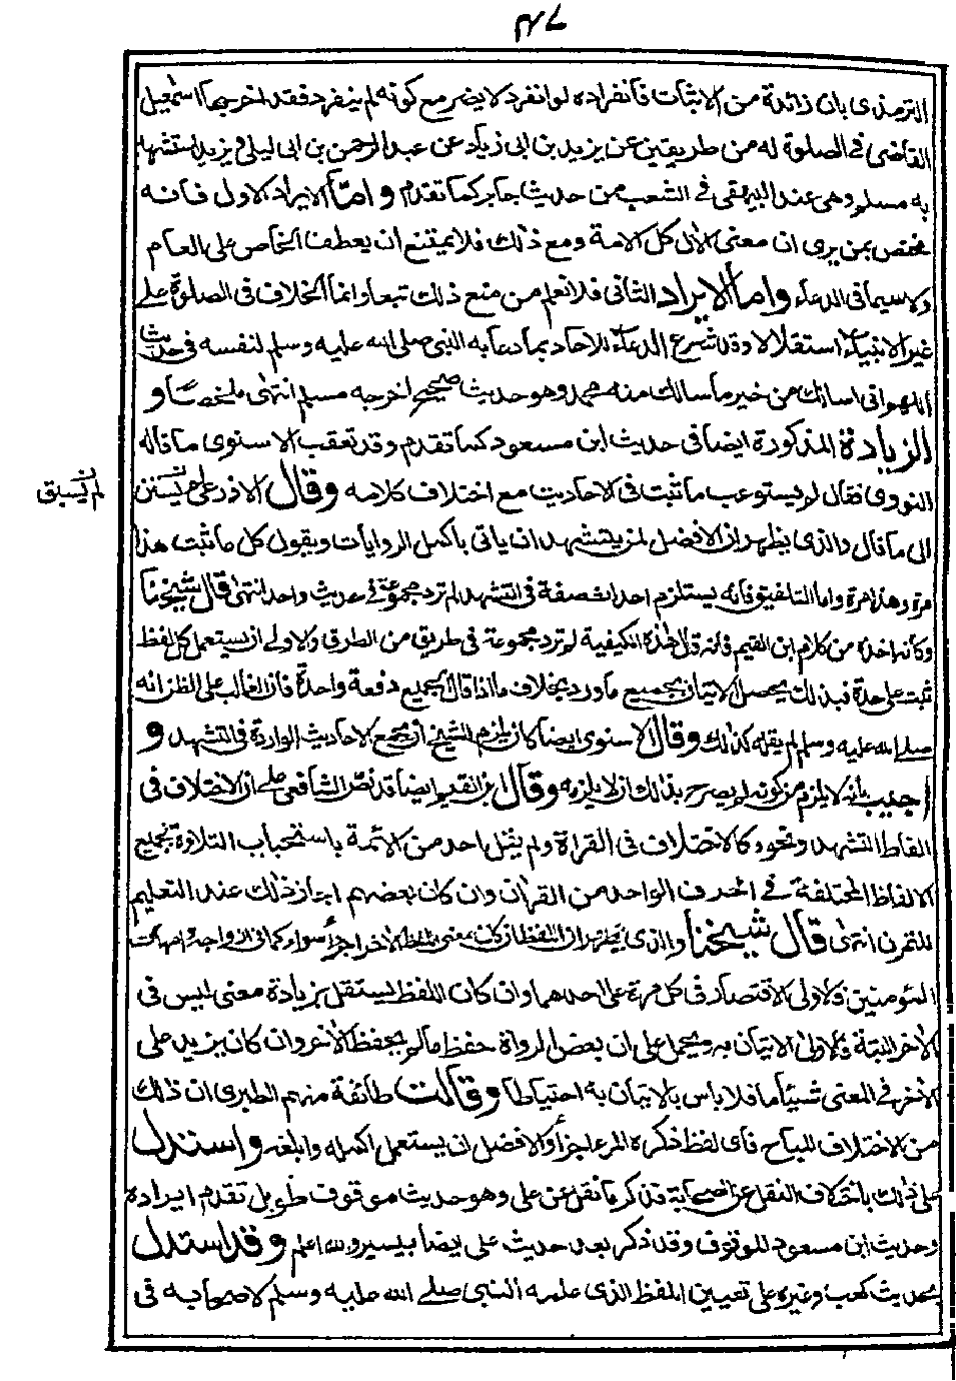 ٤٧
الترمذى بان زائدة من الاثبات فانفراده لو انفرد لا يضر مع كونه لم ينفرد فقد اخرجها اسمعيل
القاضى فى الصلوة له من طريقين عن يزيد بن ابى زياد عن عبد الرحمن بن ابى ليلى ويزيد استشهد
به مسلم وهى عند البيهقى فى الشعب من حديث جابر كما تقدم واما الايراد الاول فانه
مختص بمن يرى ان معنى الال كل الامة ومع ذلك فلا يمتنع ان يعطف الخاص على العام
ولا سيما فى الدعاء واما الايراد الثانى فلا نعلم من منع ذلك تبعا وانما الخلاف فى الصلوة على
غير الانبياء استقلالا وقد شرع الدعاء للاحاد بما دعا به النبى صلى الله عليه وسلم لنفسه فى حديث
اللهم انى اسالك من خير ما سالك منه محمد وهو حديث صحيح اخرجه مسلم انتهى ملخصا و
الزيادة المذكورة ايضا فى حديث ابن مسعود كما تقدم وقد تعقب الاسنوى ما قاله
النووى فقال لم يستوعب ما ثبت فى الاحاديث مع اختلاف كلامه وقال الاذرعى لم يسبق
لم يسبق
الى ما قال والذى يظهر ان الافضل لمن يتشهد ان ياتى باكمل الروايات ويقول كل ما ثبت هذا
مرة وهذا مرة واما التلفيق فانه يستلزم احداث صفة فى التشهد لم ترد مجموعة فى حديث واحد انتهى قال شيخنا
وكانه اخذه من كلام ابن القيم فانه قال ان هذه الكيفية لم ترد مجموعة فى طريق من الطرق والاولى ان يستعمل كل لفظ
ثبت على حدة فبذلك يحصل الاتيان بجميع ما ورد بخلاف ما اذا قال الجميع دفعة واحدة فان الغالب على الظن انه
صلى الله عليه وسلم لم يقله كذلك وقال الاسنوى ايضا كان يلزم الشيخ ان يجمع الاحاديث الواردة فى التشهد و
اجيب بانه لا يلزم من كونه لم يصرح بذلك ان لا يلزمه وقال ابن القيم ايضا قد نص الشافعى على ان الاختلاف فى
الفاظ التشهد ونحوه كالاختلاف فى القراة ولم يقل احد من الائمة باستحباب التلاوة بجميع
الالفاظ المختلفة فى الحرف الواحد من القران وان كان بعضهم اجاز ذلك عند التعليم
للتمرن انتهى قال شيخنا والذى يظهر ان اللفظ ان كان بمعنى اللفظ الاخر اجزأ سواء كما فى ازواجه وامهات
المؤمنين فالاولى الاقتصار فى كل مرة على احدهما وان كان اللفظ يستقل بزيادة معنى ليس فى
الاخر البتة فالاولى الاتيان به ويحمل على ان بعض الرواة حفظ ما لم يحفظ الاخر وان كان يزيد على
الاخر فى المعنى شيئا ما فلا باس بالاتيان به احتياطا وقالت طائفة منهم الطبرى ان ذلك
من الاختلاف المباح فاى لفظ ذكره المرء اجزأ والافضل ان يستعمل اكمله وابلغه واستدل
على ذلك باختلاف النقل عن الصحابة فذكر ما نقل عن على وهو حديث موقوف طويل تقدم ايراده
وحديث ابن مسعود الموقوف وقد ذكر بعد حديث على ايضا بيسير والله اعلم وقد استدل
بحديث كعب وغيره على تعيين اللفظ الذى علمه النبى صلى الله عليه وسلم لاصحابه فى